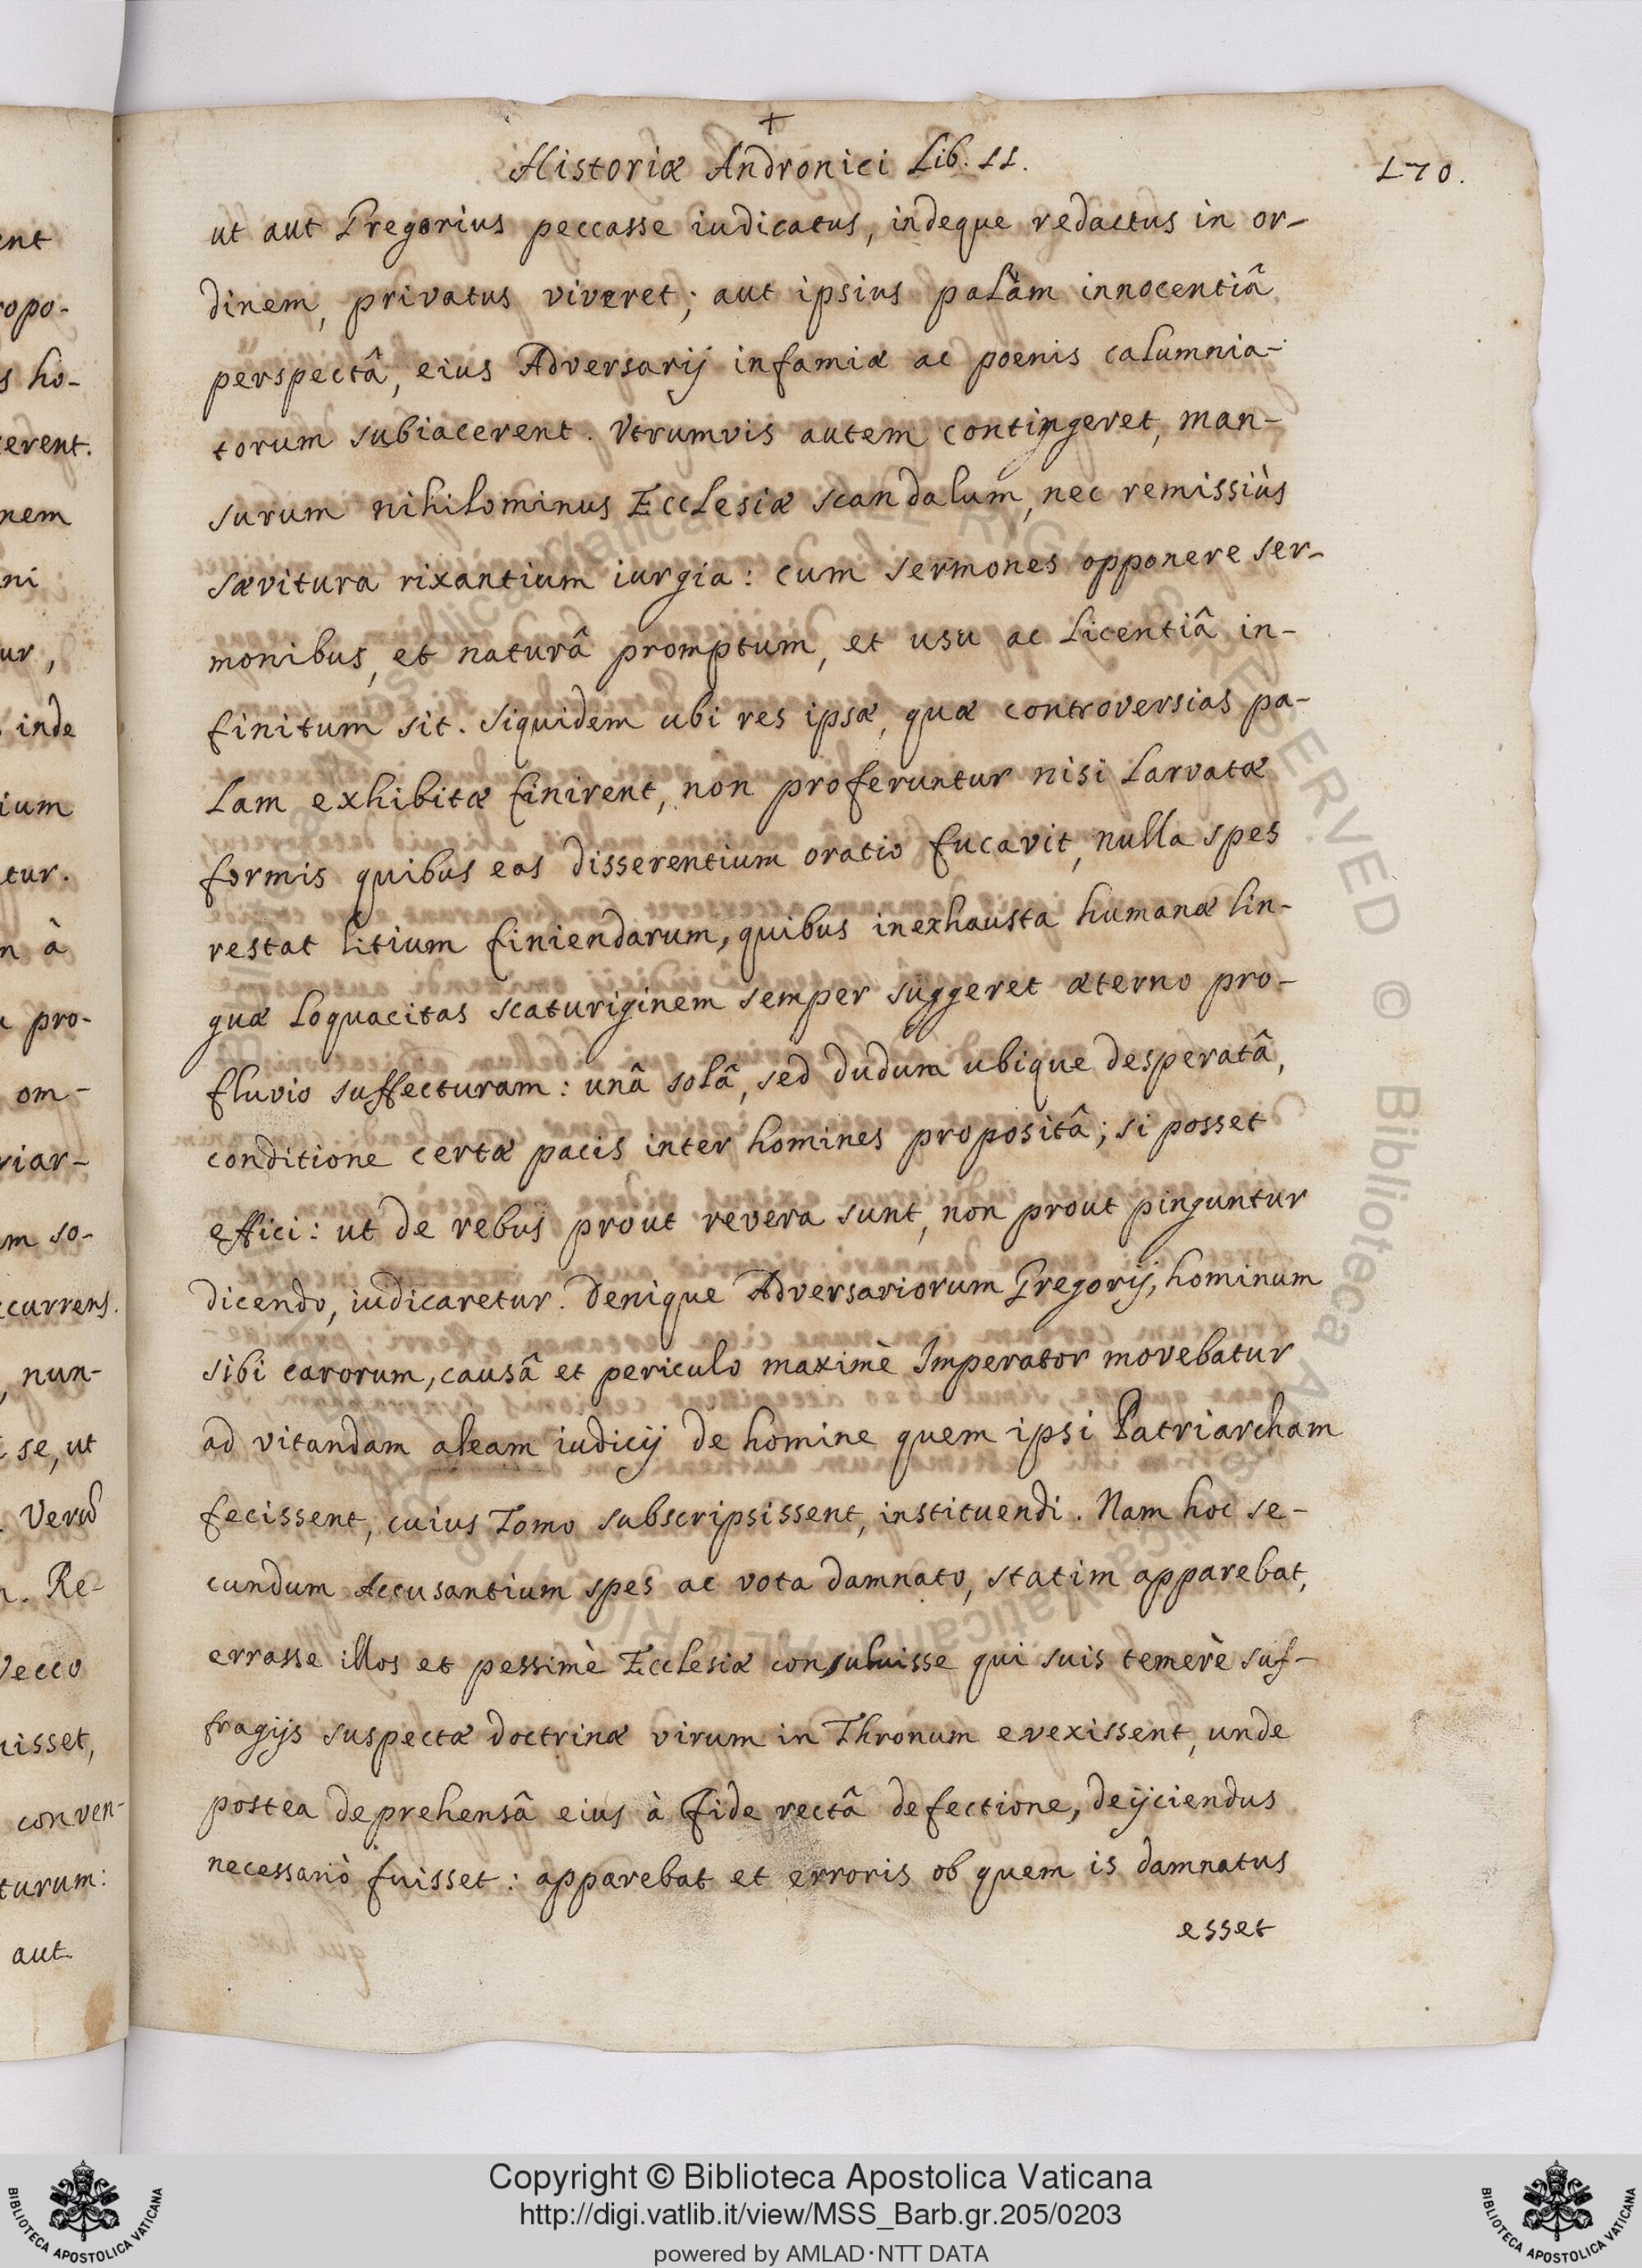 ent
opo-
s ho-
erent.
nem
ni
ur,
inde
ium
tur.
n à
pro-
om-
riar-
m so-
currens.
, nun-
se, ut
. Verũ
. Re-
Vecco
uisset,
conven-
turum:
aut
+
Historiæ Andronici Lib. II.
170.
ut aut Gregorius peccasse iudicatus, indeque redactus in or-
dinem, privatus viveret; aut ipsius palàm innocentiâ
perspectâ, eius Adversarij infamiæ ac poenis calumnia-
torum subiacerent. Vtrumvis autem contingeret, man-
surum nihilominus Ecclesiæ scandalum, nec remissiùs
sævitura rixantium iurgia: cum sermones opponere ser-
monibus, et naturâ promptum, et usu ac licentiâ in-
finitum sit. Siquidem ubi res ipsæ, quæ controversias pa-
lam exhibitæ finirent, non proferuntur nisi larvatæ
formis quibus eas disserentium oratio fucavit, nulla spes
restat litium finiendarum, quibus inexhausta humanæ lin-
guæ loquacitas scaturiginem semper suggeret æterno pro-
fluvio suffecturam: unâ solâ, sed dudum ubique desperatâ,
conditione certæ pacis inter homines propositâ; si posset
effici: ut de rebus prout revera sunt, non prout pinguntur
dicendo, iudicaretur. Denique Adversariorum Gregorij, hominum
sibi carorum, causâ et periculo maximè Imperator movebatur
ad vitandam aleam iudicij de homine quem ipsi Patriarcham
fecissent, cuius Tomo subscripsissent, instituendi. Nam hoc se-
cundum Accusantium spes ac vota damnato, statim apparebat,
errasse illos et pessimè Ecclesiæ consuluisse qui suis temerè suf-
fragijs suspectæ doctrinæ virum in Thronum evexissent, unde
postea deprehensâ eius à fide rectâ defectione, deijciendus
necessariò fuisset: apparebat et erroris ob quem is damnatus
esset
Copyright © Biblioteca Apostolica Vaticana
http://digi.vatlib.it/view/MSS_Barb.gr.205/0203
powered by AMLAD·NTT DATA
BIBLIOTECA APOSTOLICA VATICANA
BIBLIOTECA APOSTOLICA VATICANA